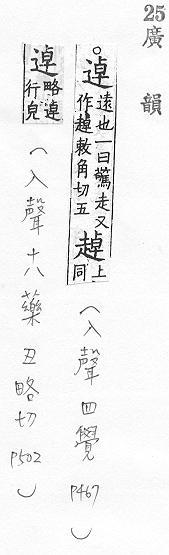 25
廣韻
○逴遠也一曰驚走又
作趠敕角切五趠上
同
(入聲四覺 P467)
逴略逴
行皃
(入聲十八藥 丑略切 P502)